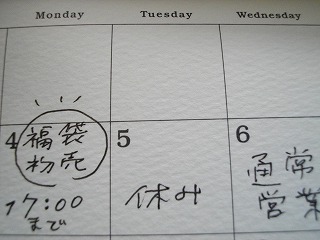 Monday Tuesday Wednesday
4 福袋
初売
17:00
まで
5
休み
6
通常
営業